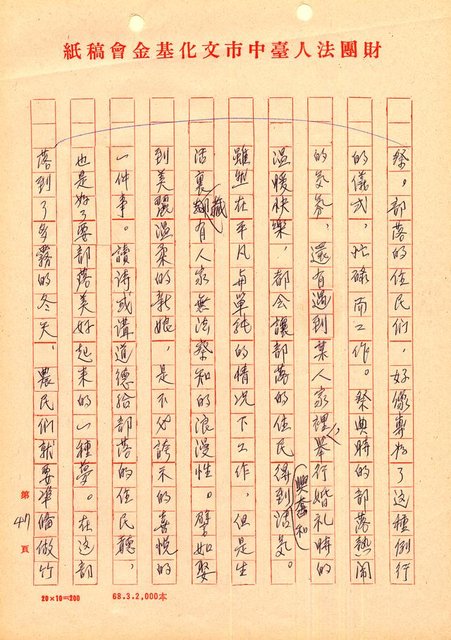 財團法人臺中市文化基金會稿紙
祭。部落的住民們，好像專為了這種例行
的儀式，忙碌而工作。祭典時的部落熱鬧
的氣氛，還有遇到某人家裡舉行婚礼時的
溫暖快樂，都會讓部落的住民得到興奮和活氣。
雖然在平凡與單純的情況下工作，但是生
活裏藏有人家無法察知的浪漫性。譬如娶
到美麗溫柔的新娘，是不必誇示的喜悅的
一件事。讀詩或講道德給部落的住民聽，
也是為了要部落美好起來的一種夢。在这部
落到了多霧的冬天，農民們就要準備做竹
第47頁
20×10=200
68.3.2,000本